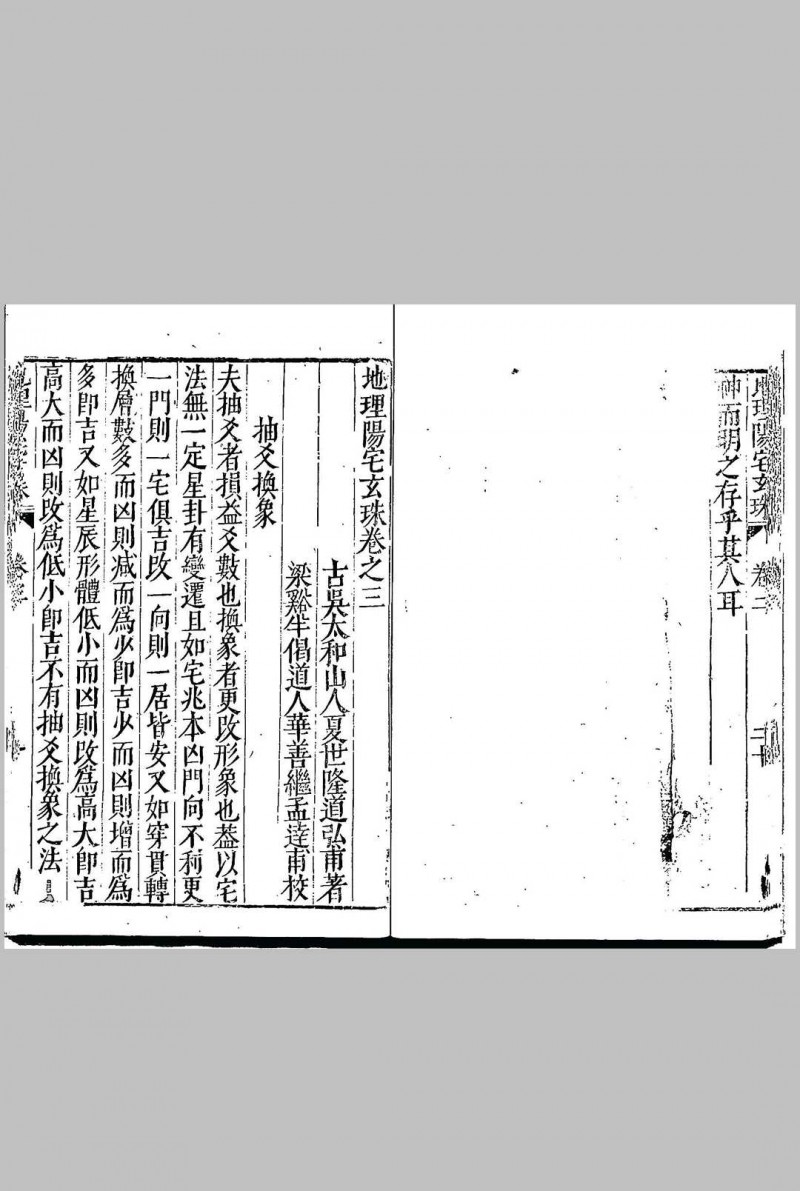 地理陽宅玄珠 卷二 二十
神而明之存乎其人耳
地理陽宅玄珠卷之三
古吳太和山人夏世隆道弘甫著
梁谿半偈道人華善繼孟達甫校
抽爻換象
夫抽爻者損益爻數也換象者更改形象也葢以宅
法無一定星卦有變遷且如宅兆本凶門向不利更
一門則一宅俱吉改一向則一居皆安又如穿貫轉
換層數多而凶則减而爲少卽吉少而凶則增而爲
多卽吉又如星辰形體低小而凶則改爲高大卽吉
高大而凶則改爲低小卽吉不有抽爻換象之法